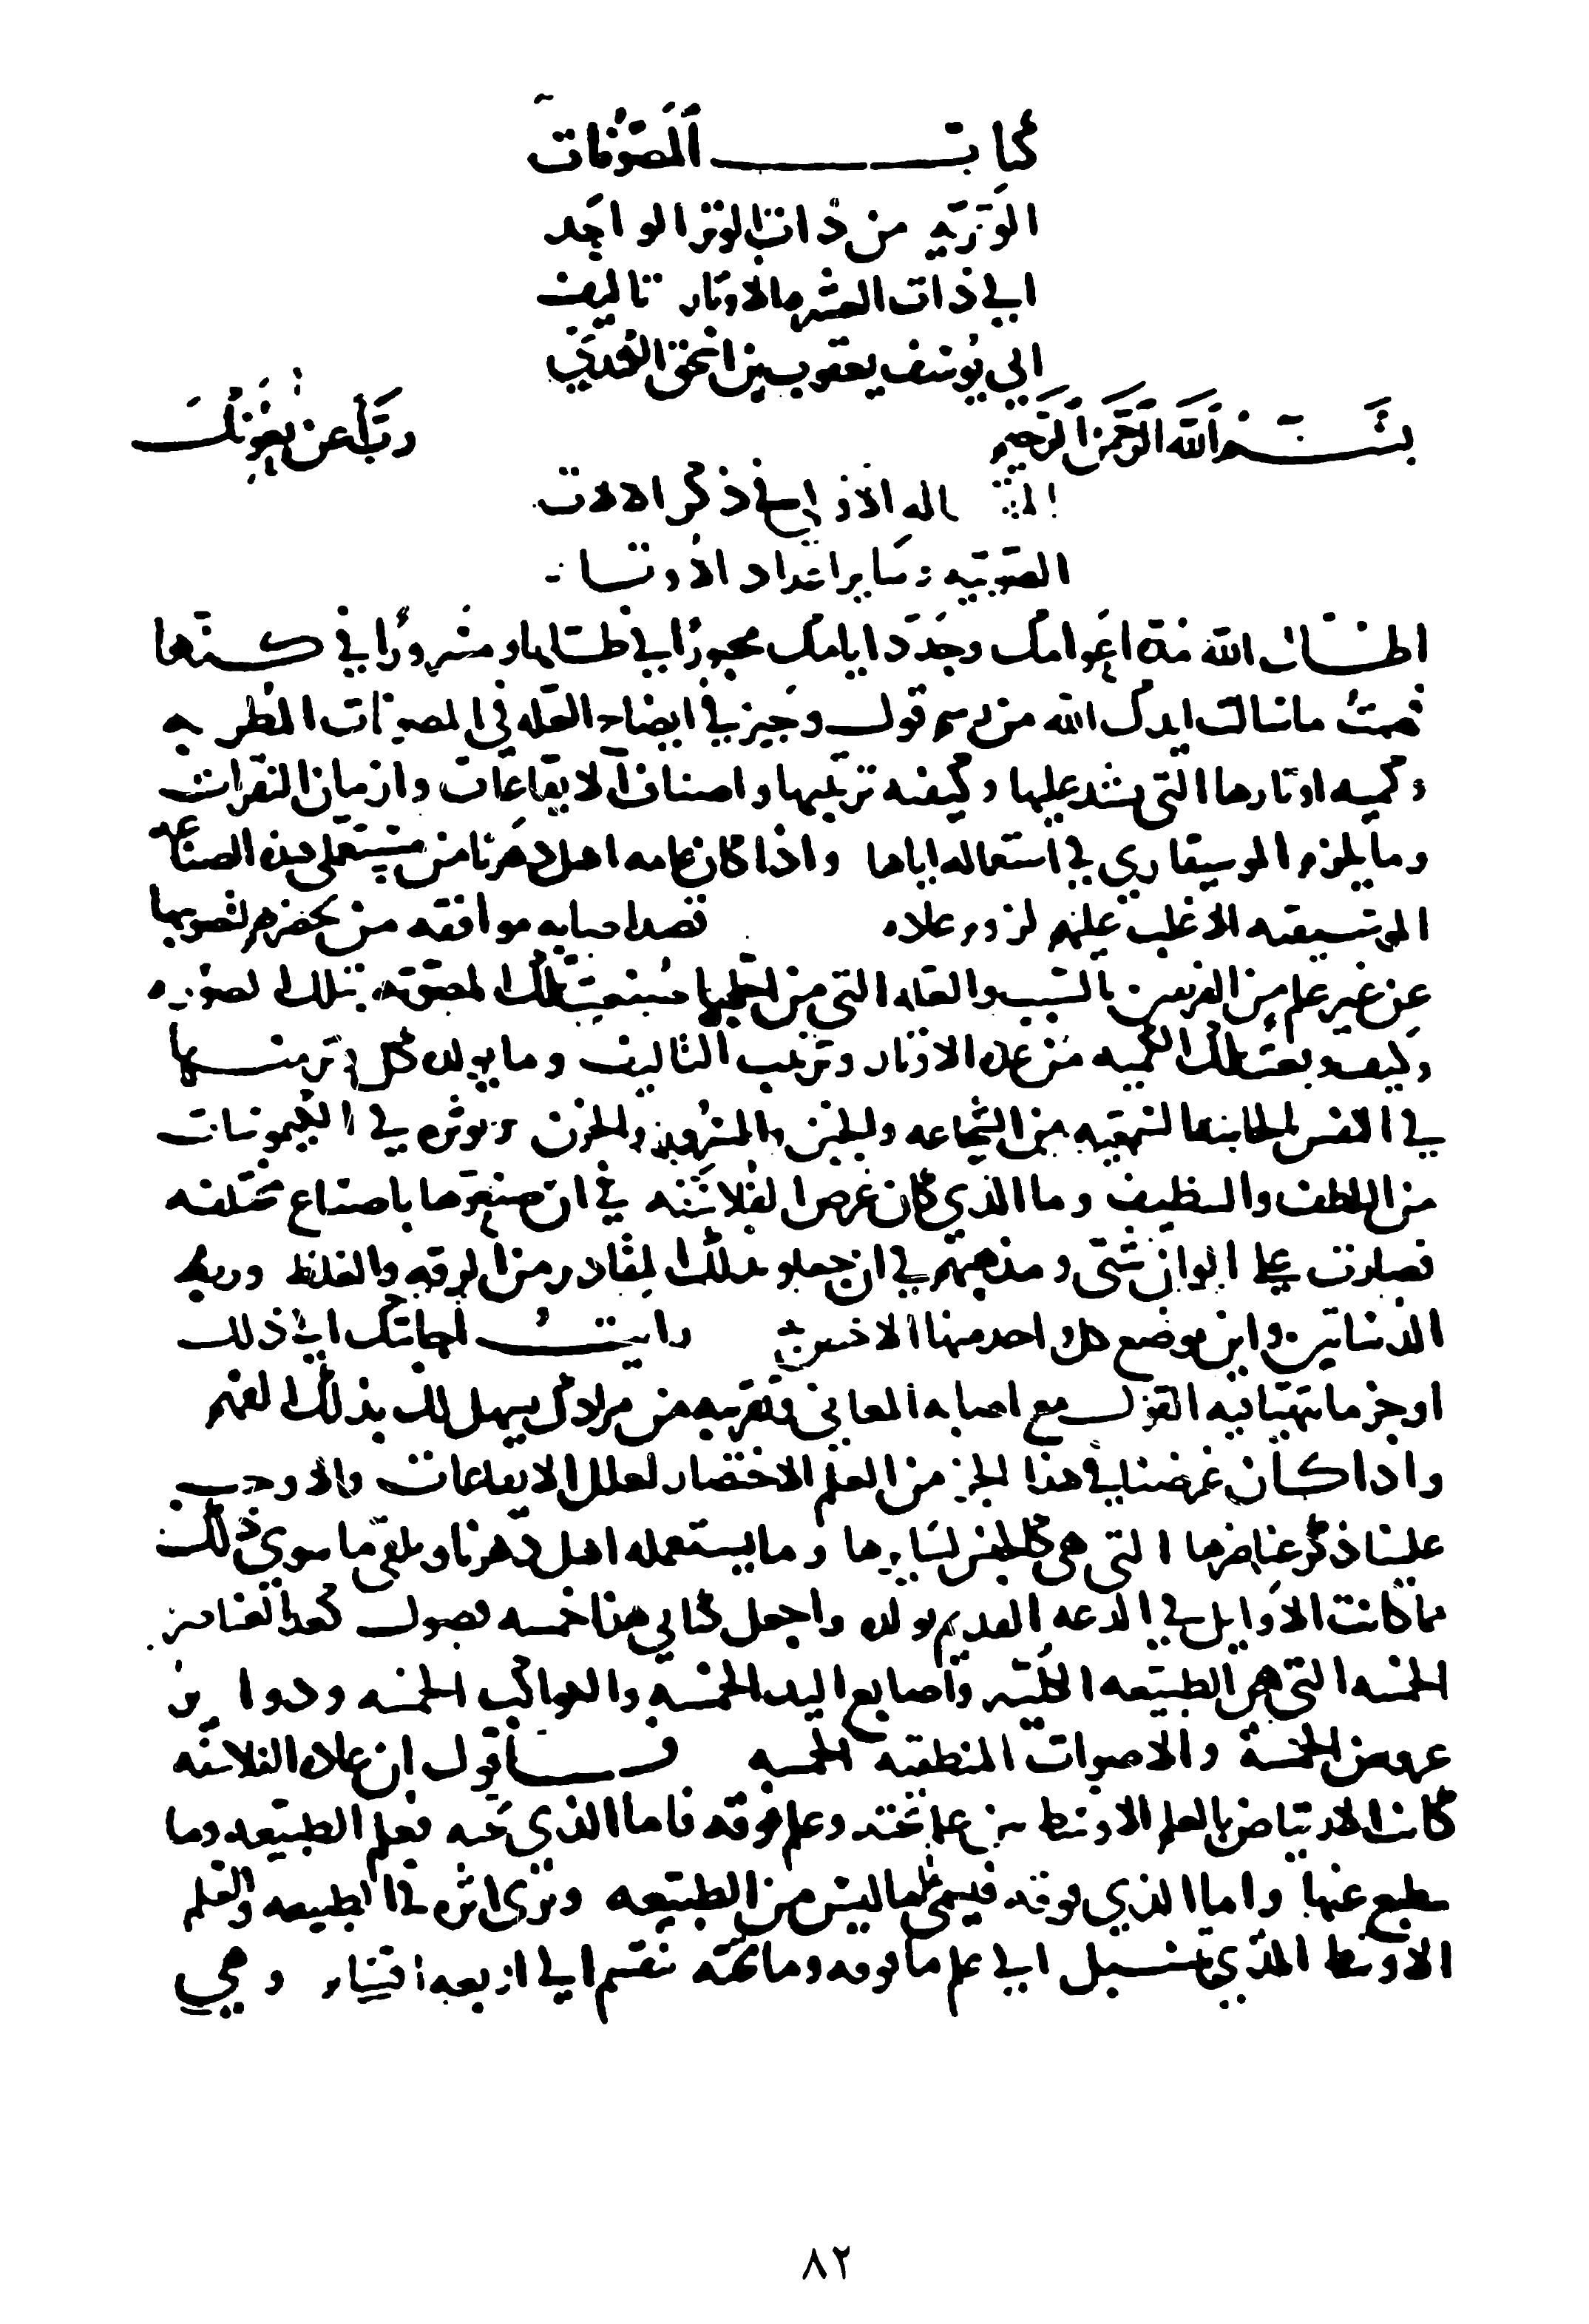 كتاب المصوتات
الوترية من ذات الوتر الواحد
الى ذات العشرة الاوتار تاليف
ابي يوسف يعقوب بن اسحق الكندي
بسم الله الرحمن الرحيم رب اعن بعونك
المقاله الاولي في ذكر الالات
الصوتيه وساير اعداد الاوتار
اطال الله مدة اعوامك وجدد ايامك محبورا في ظلالها ومسرورا في كنفها
فهمت ما سالت ايدك الله من رسم قول وجيز في ايضاح العله في المصوتات المطربه
وكميه اوتارها التي تشد عليها وكيفيه ترتيبها واصناف الايقاعات وازمان النقرات
وما يلزم الموسيقاري في استعماله اياها واذا كان عامه اهل دهرنا من مستعملي هذه الصناعه
الموسيقيه الاغلب عليهم لزوم علاه قصد اصابه موافقه من بحضرهم لتصويبها
عن غير علم من الفريقين بالسبب والعله التي من صنعت تلك المصوته بتلك الصوره
وكيف وبعت تلك الكميه من عدد الاوتار وترتيب التاليف وما يولد كل وتر منها
في النفس من الشجاعه والجبن والسرور والحزن وتوثره في الكيموسات
من اللطف والتنظيف وما الذي كان غرض الفلاسفه في ان صنعوها باصناع مختلفه
فصارت على الوان شتى ومذهبهم في ان جعلو تلك المقادر من الرقه والغلظ وربط
الدساتين واين موضع كل واحد منها رايت اجابتك الى ذلك
اوجز ما يتهيا فيه القول مع اصابه المعاني وتقريبه من مرادك ليسهل لك بذلك الفهم
واذا كان غرضنا في هذا الجز من العلم الاختصار لعلل الايقاعات والاوجب
علينا ذكر عناصرها التي هي كالجنس لسايرها وما يستعمله اهل دهرنا ونلغي ما سوي ذلك
مما كانت الاوايل في الدهر القديم تولد واجعل كتابي هذا خمسه فصول كعدد العناصر
الخمسه التي هي الطبيعه الكليه واصابع اليد الخمسه والكواكب الخمسه ودواير
عروض الخمسة والاصوات المنطقيه الخمسه فاقول ان علاه الفلاسفه
كانت الارتياض بالعلم الاوسط بين علم تحته وعلم فوقه فاما الذي تحته فعلم الطبيعه وما
ينطبع عنها واما الذي فوقه فيسمى علم ما ليس من الطبيعه وترى اثره في الطبيعه والعلم
الاوسط الذي يتسبل الى علم ما فوقه وما تحته ينقسم الى اربعه اقسام وهي
٨٢